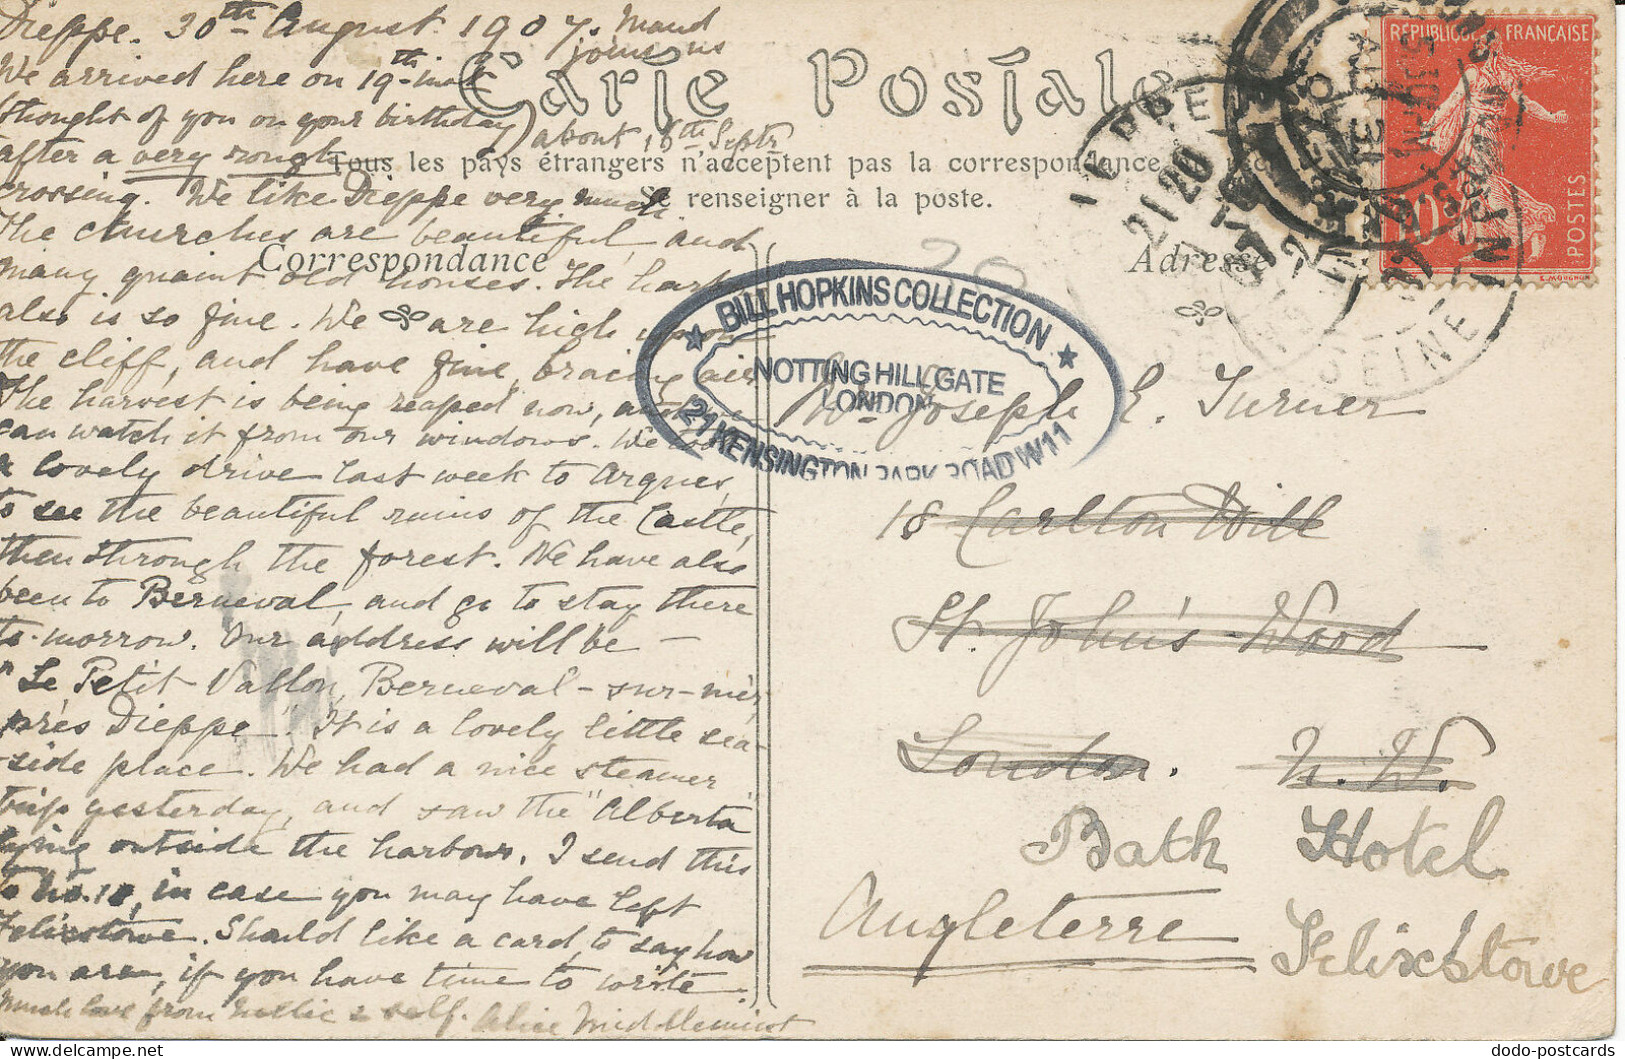 Dieppe. 30th August. 1907. Maud
joins us
We arrived here on 19th inst
(thought of you on your birthday) about 15th Septr
after a very rough
crossing. We like Dieppe very much.
The churches are beautiful, and
many quaint old houses. The harbr
also is so fine. We are high upon
the cliff, and have fine, bracing air
The harvest is being reaped now, and we
can watch it from our windows. We had
a lovely drive last week to Arques,
to see the beautiful ruins of the Castle,
then through the forest. We have also
been to Berneval, and go to stay there
to-morrow. Our address will be —
"Le Petit Vallon, Berneval-sur-mer,
près Dieppe". It is a lovely little sea-
-side place. We had a nice steamer
trip yesterday, and saw the "Alberta"
lying outside the harbour. I send this
to No. 18, in case you may have left
Felixstowe. Should like a card, to say how
you are, if you have time to write.
Much love from Nellie & self. Alice Middlemist
Carte Postale
Tous les pays étrangers n'acceptent pas la correspondance au recto
Se renseigner à la poste.
Correspondance
Adresse
20
BILL HOPKINS COLLECTION
NOTTING HILL GATE
LONDON
21 KENSINGTON PARK ROAD W11
DIEPPE
21 20
SEINE IN
RÉPUBLIQUE FRANÇAISE
10c
POSTES
E. MOUCHON
Mr Joseph E. Turner
18 Carlton Hill
St. John's Wood
London. N.W.
Bath Hotel
Angleterre
Felixstowe
dodo-postcards